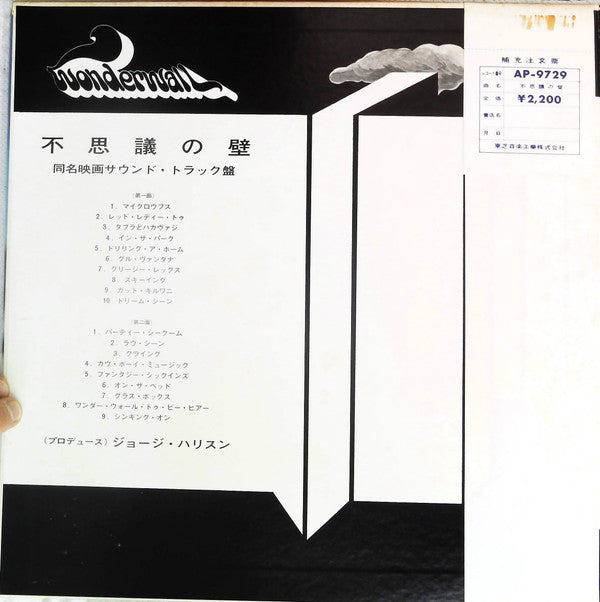 wonderwall
不思議の壁
同名映画サウンド・トラック盤
(第一面)
1. マイクロウブス
2. レッド・レディー・トゥ
3. タブラとパカヴァジ
4. イン・ザ・パーク
5. ドリリング・ア・ホーム
6. グル・ヴァンダナ
7. グリージー・レッグス
8. スキーイング
9. ガット・キルワニ
10. ドリーム・シーン
(第二面)
1. パーティー・シークーム
2. ラヴ・シーン
3. クライング
4. カウ・ボーイ・ミュージック
5. ファンタジー・シックインズ
6. オン・ザ・ベッド
7. グラス・ボックス
8. ワンダー・ウォール・トゥ・ビー・ヒアー
9. シンギング・オン
(プロデュース) ジョージ・ハリスン
補充注文票
レコード番号 AP-9729
曲名 不思議の壁
定価 ¥2,200
書店名
月日
東芝音楽工業株式会社